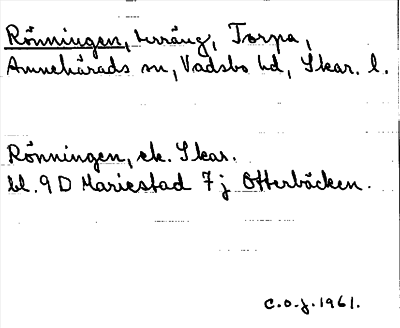 Rönningen, terräng, Torpa,
Amnehärads sn, Vadsbo hd, Skar. l.
Rönningen, ek. Skar.
bl. 9 D Mariestad 7 j Otterbäcken.
C.O.J. 1961.